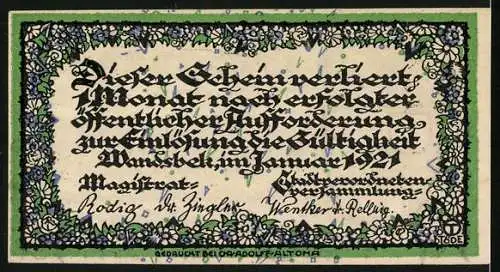 Dieser Schein verliert
1 Monat nach erfolgter
öffentlicher Aufforderung
zur Einlösung die Gültigkeit
Wandsbek, im Januar 1921
Magistrat- Stadtverordneten-
versammlung-
Rodig Dr. Ziegler Wentker
GEDRUCKT BEI ADOLFF-ALTONA